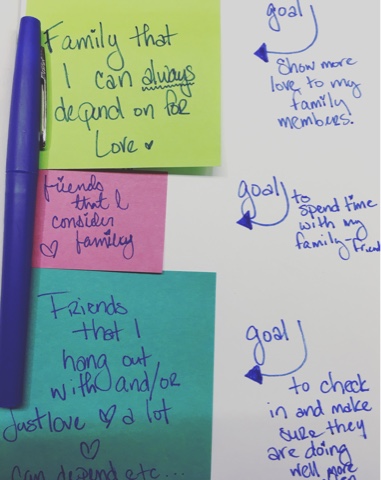 Family that
I can always
depend on for
Love
goal
Show more
love to my
family
members.
friends
that I
consider
family
goal
to
spend time
with my
family-friend
Friends
that I
hang out
with and/or
just love a lot
can depend etc...
goal
to check
in and make
sure they
are doing
well more